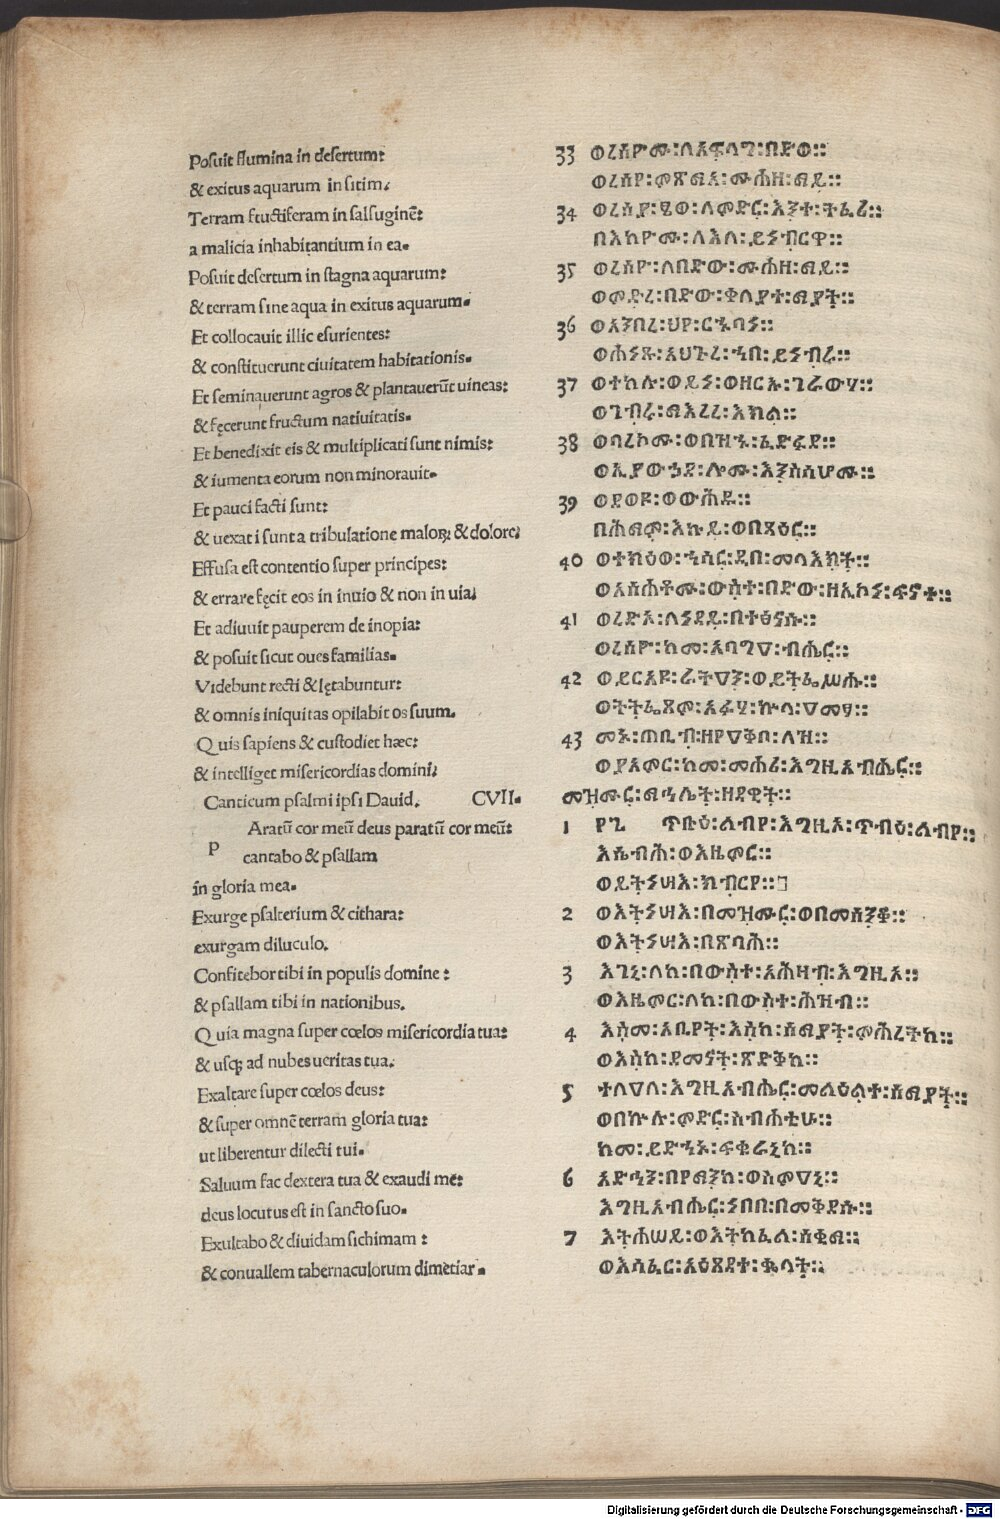 Posuit flumina in desertum:
& exitus aquarum in sitim.
Terram fructiferam in salsuginẽ:
a malicia inhabitantium in ea.
Posuit desertum in stagna aquarum:
& terram sine aqua in exitus aquarum.
Et collocauit illic esurientes:
& constituerunt ciuitatem habitationis.
Et seminauerunt agros & plantauerũt uineas:
& fęcerunt fructum natiuitatis.
Et benedixit eis & multiplicati sunt nimis:
& iumenta eorum non minorauit.
Et pauci facti sunt:
& uexati sunt a tribulatione maloꝝ & dolore.
Effusa est contentio super principes:
& errare fęcit eos in inuio & non in uia.
Et adiuuit pauperem de inopia:
& posuit sicut oues familias.
Videbunt recti & lętabuntur:
& omnis iniquitas opilabit os suum.
Quis sapiens & custodiet hæc:
& intelliget misericordias domini.
Canticum psalmi ipsi Dauid. CVII.
P Aratũ cor meũ deus paratũ cor meũ:
cantabo & psallam
in gloria mea.
Exurge psalterium & cithara:
exurgam diluculo.
Confitebor tibi in populis domine:
& psallam tibi in nationibus.
Quia magna super cœlos misericordia tua:
& usqȝ ad nubes ueritas tua.
Exaltare super cœlos deus:
& super omnẽ terram gloria tua:
ut liberentur dilecti tui.
Saluum fac dextera tua & exaudi me:
deus locutus est in sancto suo.
Exultabo & diuidam sichimam:
& conuallem tabernaculorum dimetiar.
33 ወረሰዮሙ፡ለአፍላግ፡በድወ።
ወረሰየ፡ሙሕዘ፡ማይ።
34 ወረሰያ፡ፄወ፡ለምድር፡እንተ፡ትፈሪ።
በእከዮሙ፡ለእለ፡ይነብርዋ።
35 ወረሰየ፡ለበድው፡ሙሕዘ፡ማይ።
ወምድረ፡በድው፡ቀላያተ፡ማያት።
36 ወአንበረ፡ህየ፡ርኁባነ።
ወሐነጹ፡አህጉረ፡ኀበ፡ይነብሩ።
37 ወተከሉ፡ወይነ፡ወዘርኡ፡ገራውሃ።
ወገብሩ፡ማእረረ፡እክል።
38 ወባረኮሙ፡ወበዝኁ፡ፈድፋደ።
ወኢያውኃደ፡ሎሙ፡እንስሳሆሙ።
39 ወደወዩ፡ወውሕዱ።
በሕማም፡እኩይ፡ወበጻዕር።
40 ወተክዕወ፡ኀሳር፡ዲበ፡መላእክት።
ወአስሐቶሙ፡ውስተ፡በድው፡ዘኢኮነ፡ፍኖተ።
41 ወረድአ፡ለነዳይ፡በተፅናሱ።
ወረሰዮ፡ከመ፡አባግዐ፡ብሔር።
42 ወይርአዩ፡ራትዓን፡ወይትፌሥሑ።
ወትትፌጸም፡አፉሃ፡ኵላ፡ዐመፃ።
43 መኑ፡ጠቢብ፡ዘየዐቅቦ፡ለዝ።
ወያአምር፡ከመ፡መሐሪ፡እግዚአብሔር።
መዝሙር፡ማኅሌት፡ዘዳዊት።
1 ፻፯ ጥቡዕ፡ልብየ፡እግዚአ፡ጥብዕ፡ልብየ።
እሴብሕ፡ወእዜምር።
ወይትነሣእ፡ክብርየ።
2 ወእትነሣእ፡በመዝሙር፡ወበመሰንቆ።
ወእትነሣእ፡በጽባሕ።
3 እገኒ፡ለከ፡በውስተ፡አሕዛብ፡እግዚአ።
ወእዜምር፡ለከ፡በውስተ፡ሕዝብ።
4 እስመ፡ዐቢየት፡እስከ፡ሰማያት፡ምሕረትከ።
ወእስከ፡ደመናት፡ጽድቅከ።
5 ተለዐለ፡እግዚአብሔር፡መልዕልተ፡ሰማያት።
ወበኵሉ፡ምድር፡ስብሐቲሁ።
ከመ፡ይድኅኑ፡ፍቁራኒከ።
6 አድኅን፡በየማንከ፡ወስምዐኒ።
እግዚአብሔር፡ነበበ፡በመቅደሱ።
7 እትሐሠይ፡ወእትከፈል፡ሰቂማ።
ወእሳፈር፡አዕጻዳተ፡ቈላት።
Digitalisierung gefördert durch die Deutsche Forschungsgemeinschaft - DFG